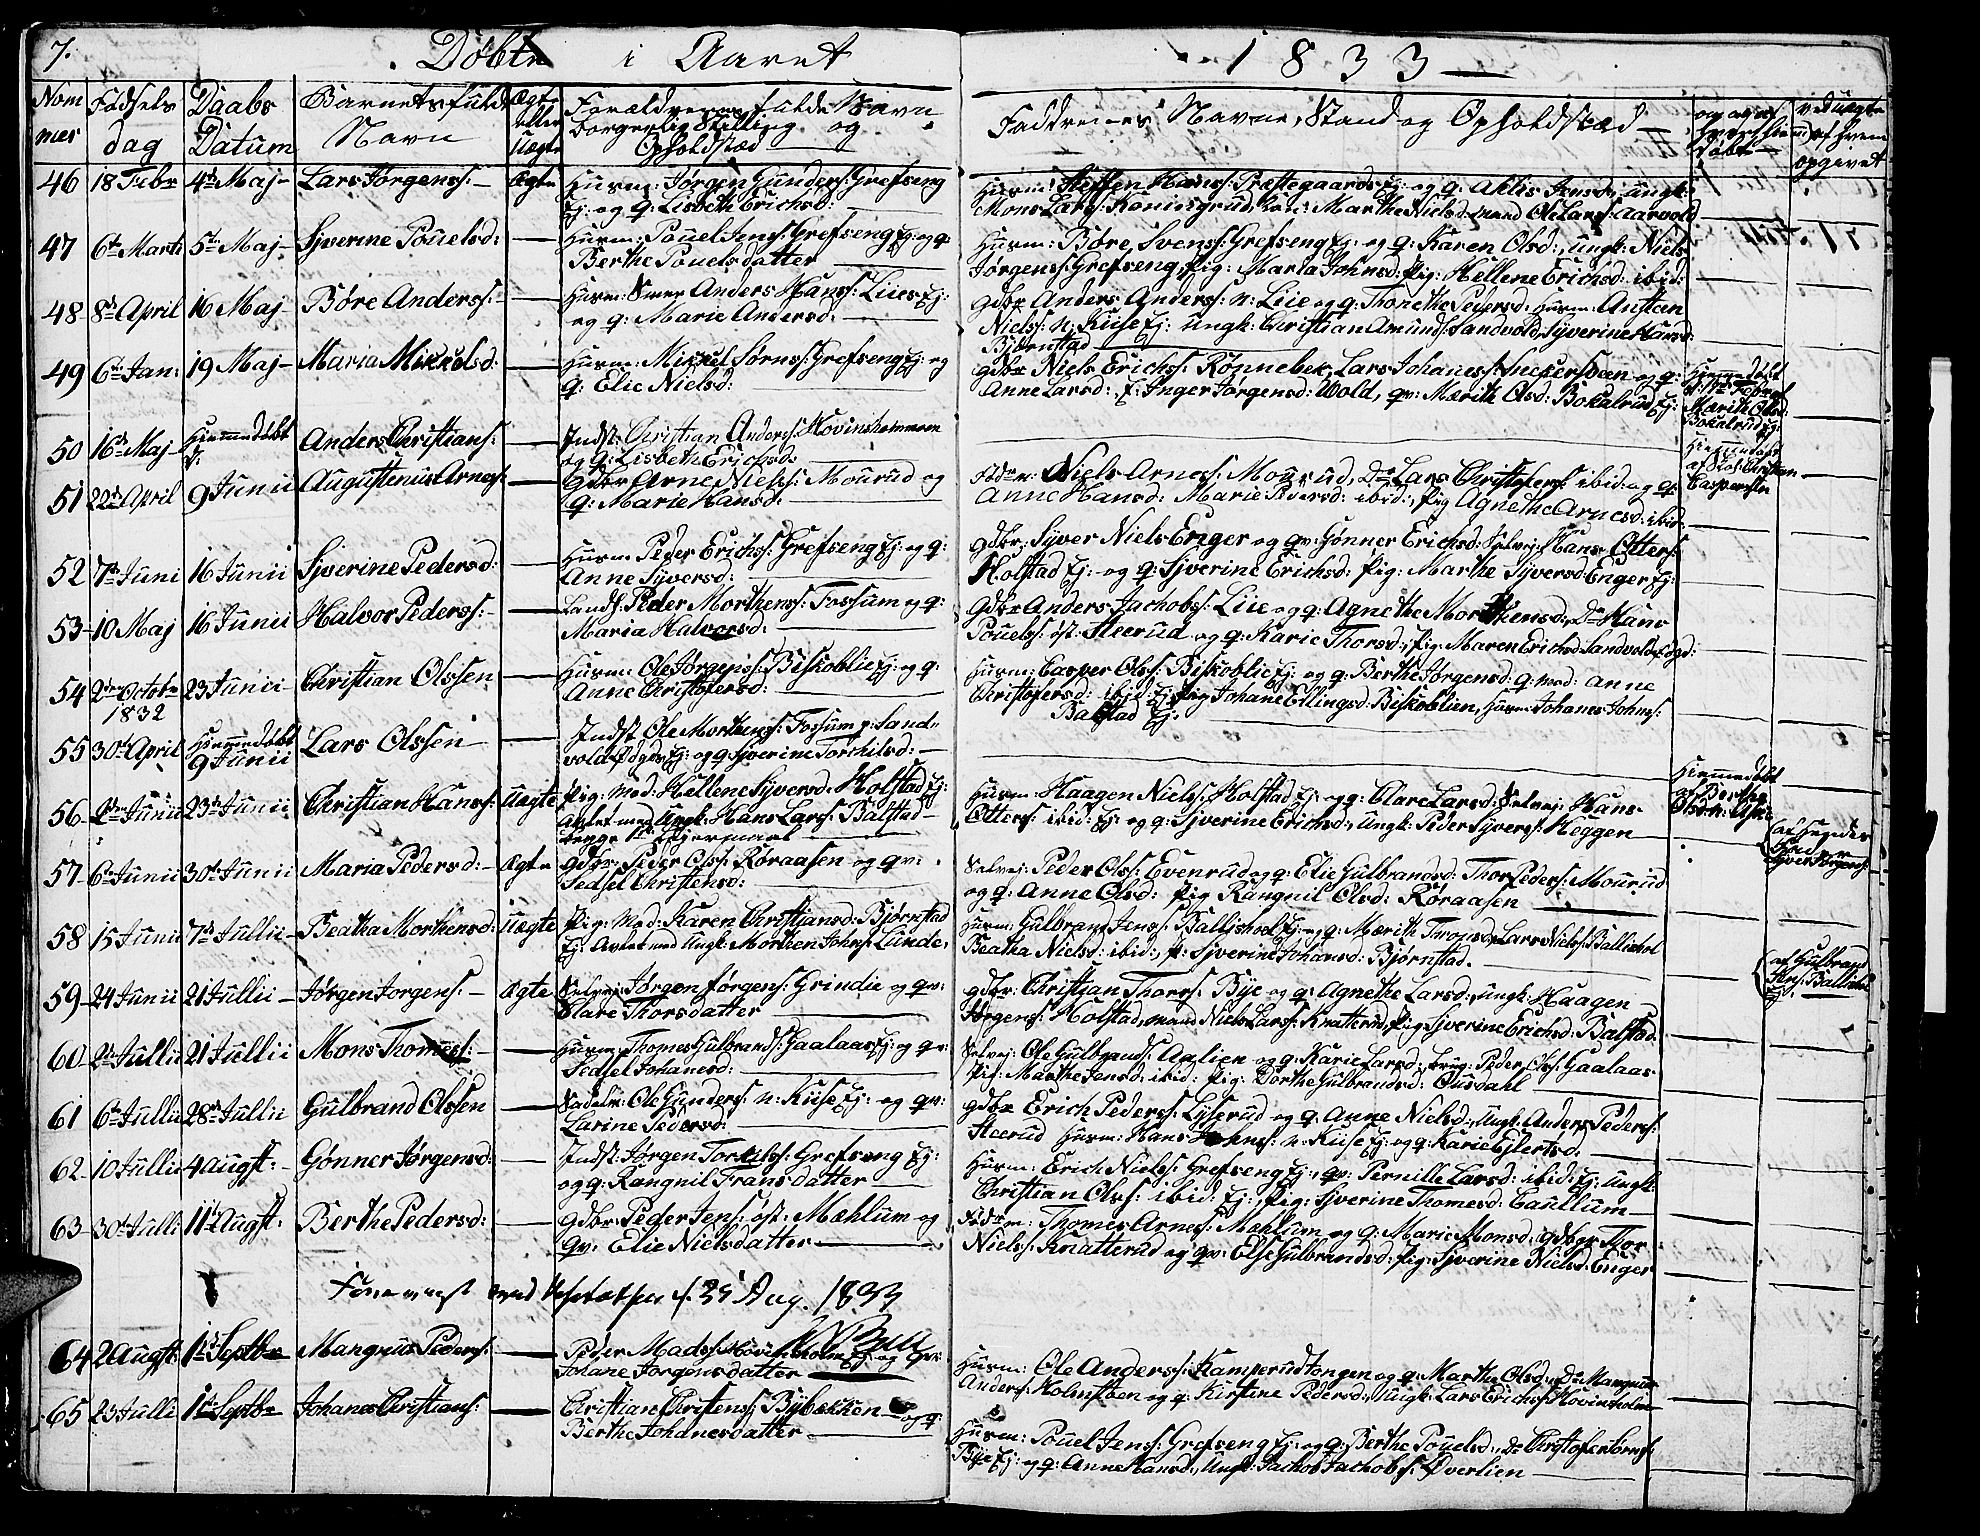 7. Døbte i Aaret 1833
Nom mer
Fødsels dag
Daabs Datum
Barnets fulde Navn
Ægte eller Uægte
Forældrenes fulde Navn Borgerlig Stilling og Opholdstæd
Faddrenes Navne, Stand og Opholdstæd
og af hvem døbt
ved uægte af hvem opgivet
46 18 Febr 4de Maj Lars Jørgenss: Ægte Huusm: Jørgen Gunders: Grefseng
Ej: og q: Lisbeth Erichsd:
Huusm: Steffen Hanss: Præstegaards Ej: og q: Jensd: Ungk:
Mons Larss: Konningrud, Marthe Nielsd: mand Ole Larss: Aarvold
47 6te Marti 5te Maj Sjverine Pouelsd: Huusm: Pouel Jenss: Grefseng Ej: og q:
Berthe Pouelsdatter
Huusm: Børe Svenss: Grefseng Ej: og q: Karen Olsd: Ungk: Niels
Jørgenss: Grefseng, Pig: Maria Johnsd: Pig: Hellene Erichsd: ibid:
48 8de April 16 Maj Børe Anderss: Huusm: Anders Hanss: Liies Ej:
og q: Marie Andersd:
Gdbr Anders Anderss: n: Liie og q: Thorethe Pedersd: Huusm: Ansten
Nielss: n: Kiise Ej: Ungk: Christian Amunds: Sandvold, Sjverine Hansd:
Bjørnstad
49 6te Jan: 19 Maj Maria Mikkelsd: Huusm: Mikkel Sørnss: Grefseng Ej: og
q: Elie Nielsd:
Gdbr Niels Erichss: Rønnebek, Lars Johaness: Snekersveen og q:
Anne Larsd: E: Inger Jørgensd: Wold, qv: Marith Olsd: Bokalrud Ej:
Hiemmedøbt
Marith Olsd:
Bokalrud Ej:
50 16de Maj Hiemmedøbt Anders Christians: Indst: Christian Anderss: Hovinsholmen
og q: Lisbeth Erichsd:
51 22de April 9 Junii Augustenus Arness: Gdbr Arne Nielss: Mourud og
q: Marie Hansd:
Niels Arness: Mourud, Do Lars Christoferss: ibid: og q:
Anne Hansd: Marie Pedersd: ibid:, Pig Agnethe Arnesd: ibid:
Hiemmedøbt
Christian
Caspersen
52 7de Juni 16 Junii Sjverine Pedersd: Huusm: Peder Erichss: Grefseng Ej: og q:
Anne Sjversd:
Gdbr: Syver Niels Enger og qv: Gønner Erichsd: Selvej: Hans Otters:
Holstad Ej: og q: Sjverine Erichsd: Pig: Marthe Sjversd: Enger Ej:
53 10 Maj 16 Junii Halvor Pederss: Lands: Peder Morthenss: Fossum og q:
Maria Halvorsd:
Gdbr Anders Jachobss: Liie og q: Agnethe Morthensd: Do Hans
Pouelss: øst: Steerud og q: Karie Thorsd:, Pig: Maren Erichsd: Sandvold
54 2den Octobr 1832 23 Junii Christian Olssen Huusm: Ole Jørgenss: Biskoblie Ej: og q:
Anne Christofersd:
Huusm: Casper Olss: Biskoblie Ej: og q: Berthe Jørgensd: q: mad: Anne
Christofersd: ibid: Ej: Pig Johane Ellingsd: Biskoblien, Huusm: Johanes Johns:
Balstad Ej:
55 30te April Hiemmedøbt 9 Junii Lars Olssen Indst Ole Morthenss: Fossum p: Sand
vold og q: Sjverine Torchilsd:
56 2den Junii 23de Junii Christian Hanss: Uægte Pig: Mad: Hellene Sjversd: Holstad Ej:
Avlet med Ungk: Hans Larss: Balstad
begge 1te Leiermaal
Huusm: Haagen Nielss: Holstad Ej: og q: Clare Larsd: Selvej: Hans
Otters: ibid: Ej: og q: Sjverine Erichsd:, Ungk: Peder Sjvers: Heggen
Hiemmedøbt
af Berthe
57 6te Junii 30te Junii Maria Pedersd: Ægte Gdbr: Peder Olss: Røraasen og qv:
Sedsel Christensd:
Selvej: Peder Olss: Evenrud og q: Elie Gulbrandsd: Thor Peders: Mourud
og q: Anne Olsd: Pig Rangnil Olsd: Røraasen
58 15 Junii 7de Jullii Beatha Morthensd: Uægte Pig: Mad: Karen Christiansd: Bjørnstad
Ej: Avlet med Ungk: Morthen Johns: Lunde
Huusm: Gulbrand Jenss: Ballishoel Ej: og q: Marith Lars Nielss: Ballishol
Beatha Nielsd: ibid:, p: Sjverine Johansd: Bjørnstad.
af Gulbrand
Jens: Ballishol
Ej:
59 24 Junii 21 Jullii Jørgen Jorgens: Ægte Selvej: Jørgen Jørgenss: Grindie og qv:
Clare Thorsdatter
Gdbr: Christian Thorss: Bye og q: Agnethe Larsd:, Ungk: Haagen
Jørgenss: Holstad, mand Niels Larss: Knatterud, Pig Sjverine Erichsd: Balstad
60 2de Jullii 21 Jullii Mons Thomess: Huusm: Thomes Gulbrandss: Gaalaas Ej: og q:
Sedsel Johanesd:
Selvej: Ole Gulbrandss: Aaslien og q: Karie Larsd:, Ungk: Peder Olss: Gaalaas
Pig: Marthe Jensd: ibid: Pig: Dorthe Gulbrandsd: Olusdahl
61 6te Jullii 28de Jullii Gulbrand Olssen Ole Gunderss: n: Kiise Ej: og qv:
Larine Pedersd:
Gdbr Erich Pederss: Lyserud og q: Anne Nielsd:, Ungk: Anders Pederss:
Steerud Huusm: Hans Johnss: n: Kiise Ej: og q: Karie Ejlertsd.
62 10 Jullii 4 Augst: Gønner Jørgensd: Indst: Jørgen Torkilss: Grefseng Ej:
og q: Rangnil Fransdatter
Huusm: Erich Nielss: Grefseng Ej: qv: Pernille Larsd: ibid: Ej: Ungk:
Christian Olss: ibid: Ej:, Pig: Sjverine Thomesd: Caullum
63 30te Julli 11te Augst: Berthe Pedersd: Gdbr: Peder Jenss: øst: Mæhlum og
qv: Elie Nielsdatter
Thomes Arness: Mæhlum og q: Marie Monsd:, Gdbgr Thor
Nielss: Knatterud og qv: Else Gulbrandsd:, Pig: Sjverine Nielsd: Enger
Foreviist ved Visitatsen d. 25 Aug. 1833
64 2 Augst: 1te Septbr Mangnus Pederss: Peder Madss: Hovinsholm Ej: og qv:
Johane Jorgensdatter
Huusm: Ole Anderss: Kamperudtongen og q: Marthe Olsd:, Do Mangnus
Anderss: Holmstøen og q: Kirstine Pedersd:, Ungk: Lars Erichss: Hovinsholm
65 23 Julli 1te Septbr Johanes Christians: Christian Christenss: Byebækken og q:
Berthe Johanesdatter
Huusm: Pouel Jenss: Grefseng Ej: og q: Berthe Pouelsd:, Do Christofer
Bye Ej: og q: Anne Hansd:, Ungk: Jachob Jachobss: Øverlien